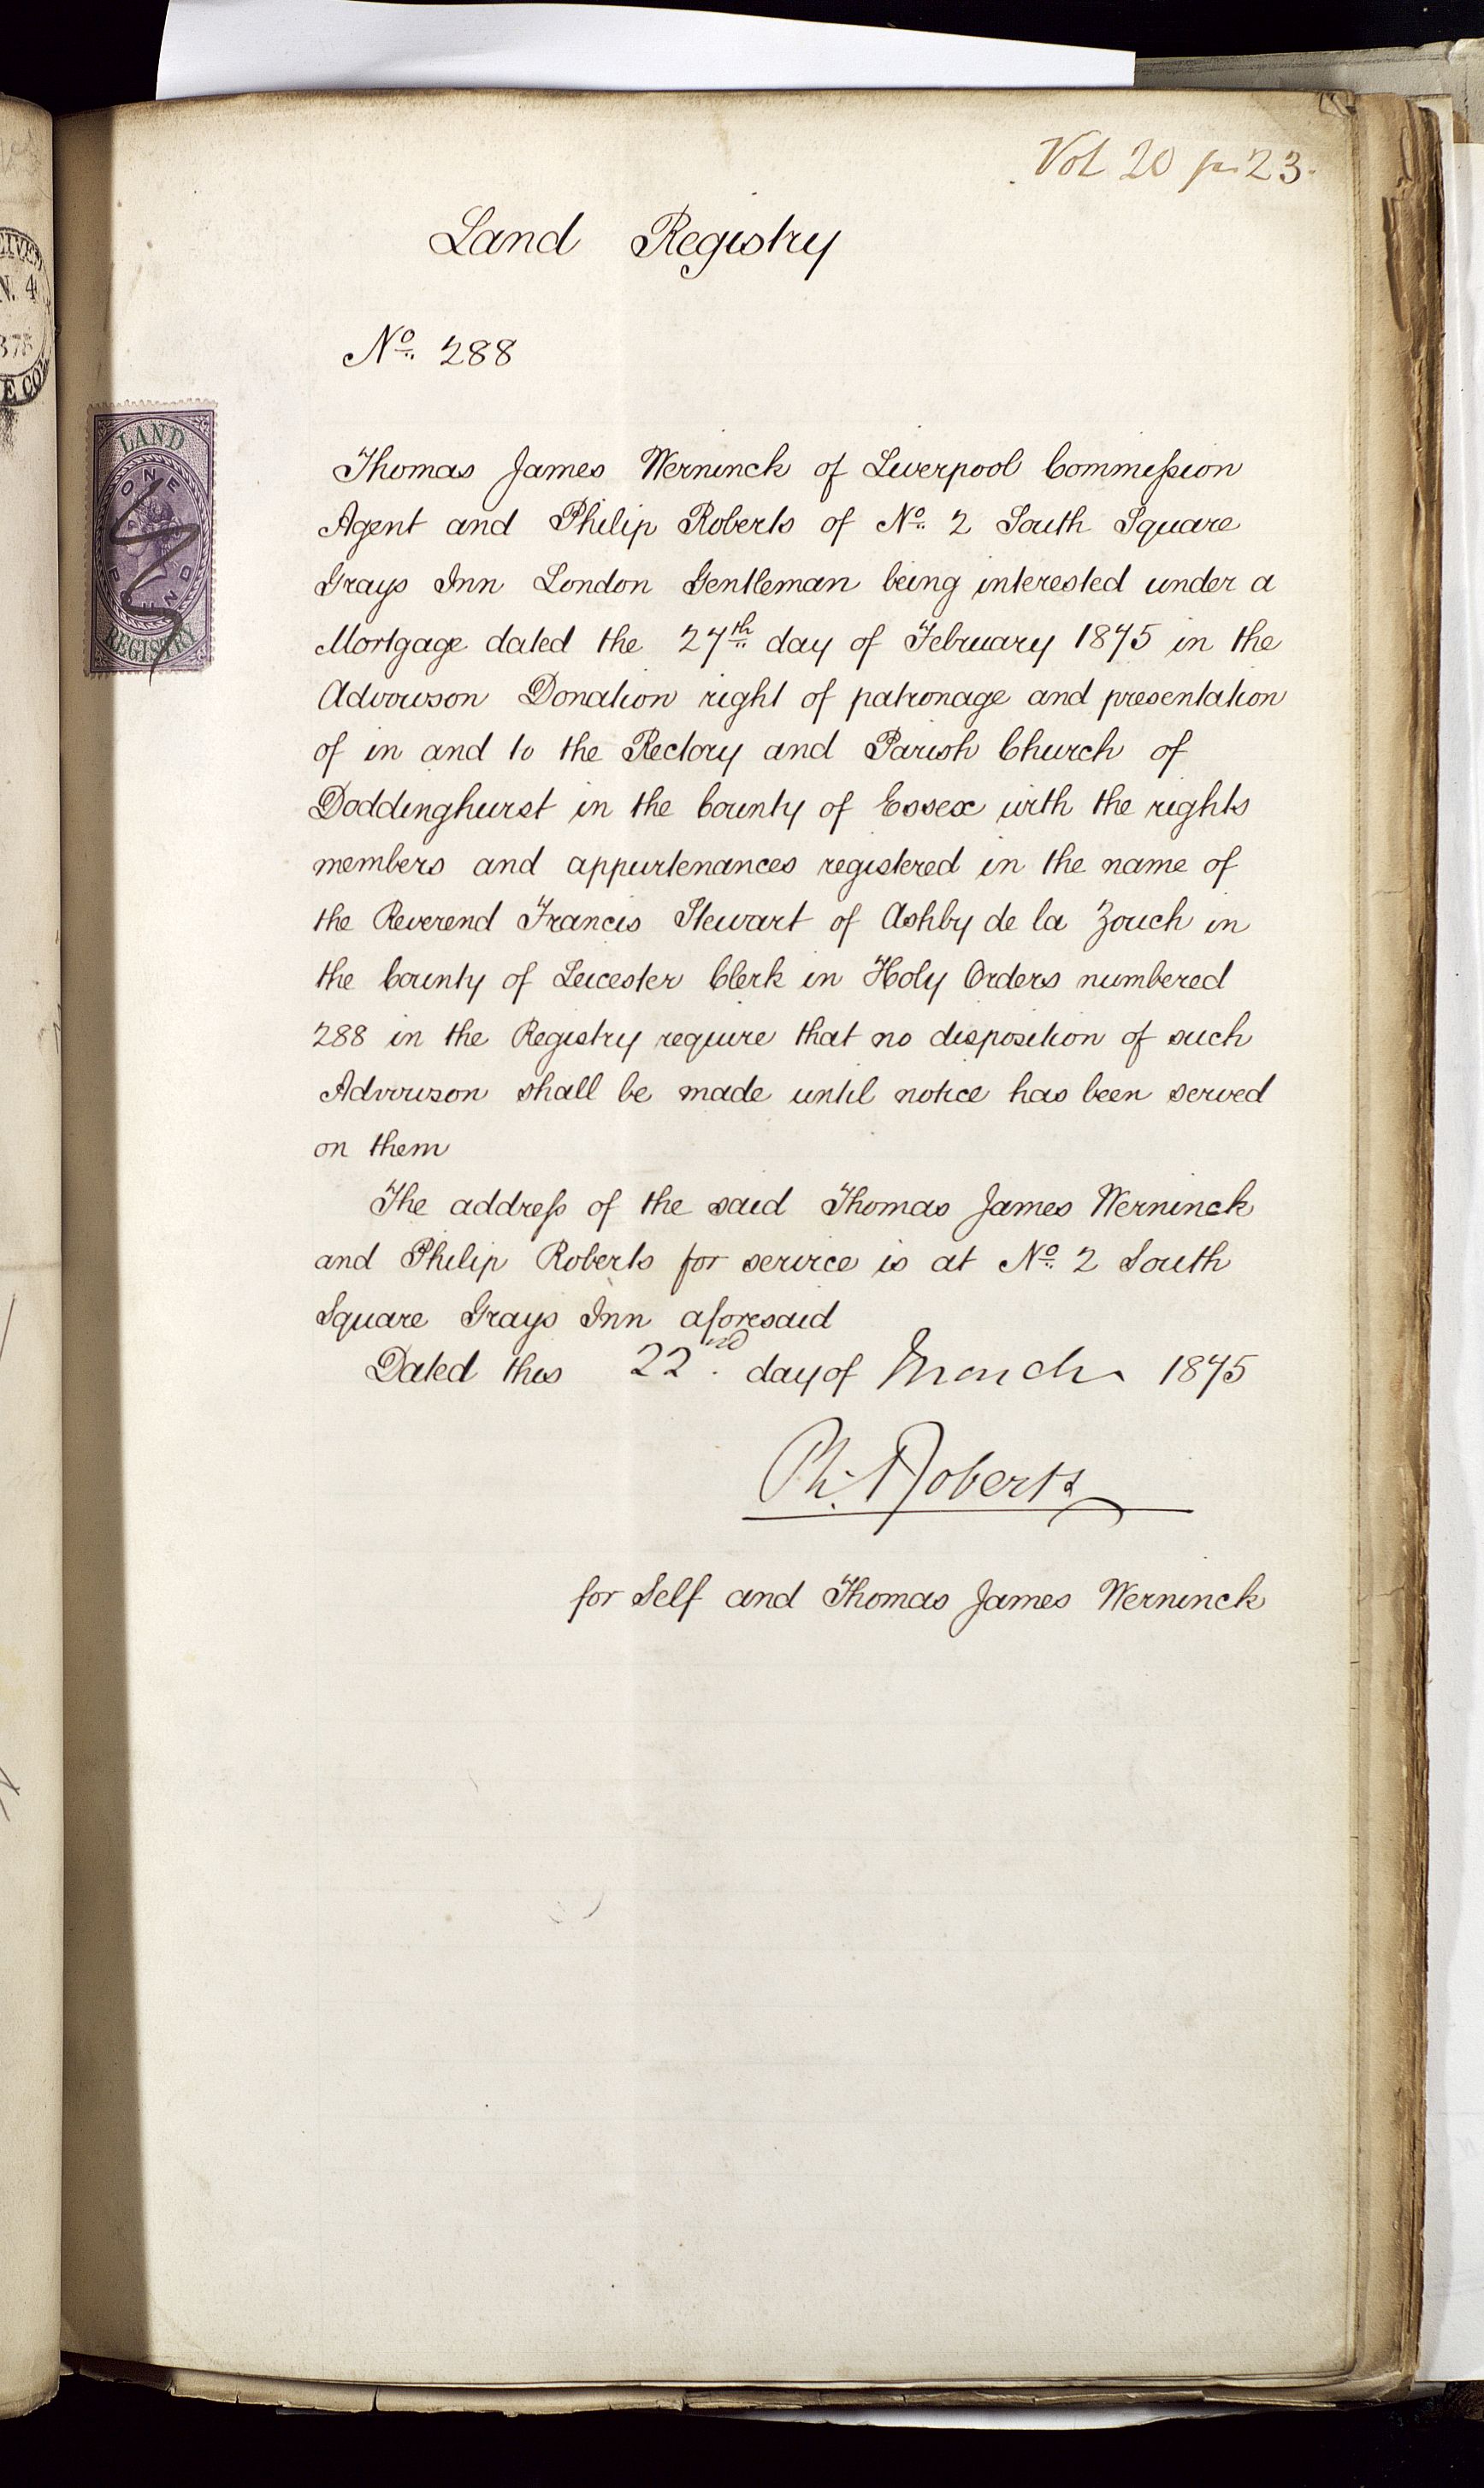 Vol 20 p. 23.
Land Registry
No. 288
LAND
ONE
POUND
REGISTRY
Thomas James Werninck of Liverpool Commission
Agent and Philip Roberts of No. 2 South Square
Grays Inn London Gentleman being interested under a
Mortgage dated the 27th day of February 1875 in the
Advowson Donation right of patronage and presentation
of in and to the Rectory and Parish Church of
Doddinghurst in the County of Essex with the rights
members and appurtenances registered in the name of
the Reverend Francis Stewart of Ashby de la Zouch in
the County of Leicester Clerk in Holy Orders numbered
288 in the Registry require that no disposition of such
Advowson shall be made until notice has been served
on them
The address of the said Thomas James Werninck
and Philip Roberts for service is at No. 2 South
Square Grays Inn aforesaid
Dated this 22nd. day of March 1875
Ph. Roberts
for Self and Thomas James Werninck